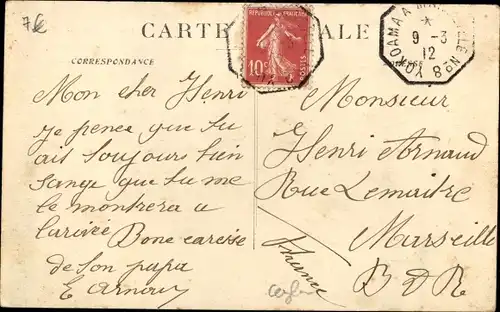 7€
CARTE POSTALE
CORRESPONDANCE
REPUBLIQUE FRANÇAISE
10
POSTES
YOKOHAMA A MARSEILLE Nº 8
*
9 - 3
12
Mon cher Henri
je pence que tu
ait toujours bien
sange que tu me
le montrera a
larivée Bone caresse
de ton papa
E Arnoux
Monsieur
Henri Arnaud
Rue Lemaitre
Marseille
B D R
France